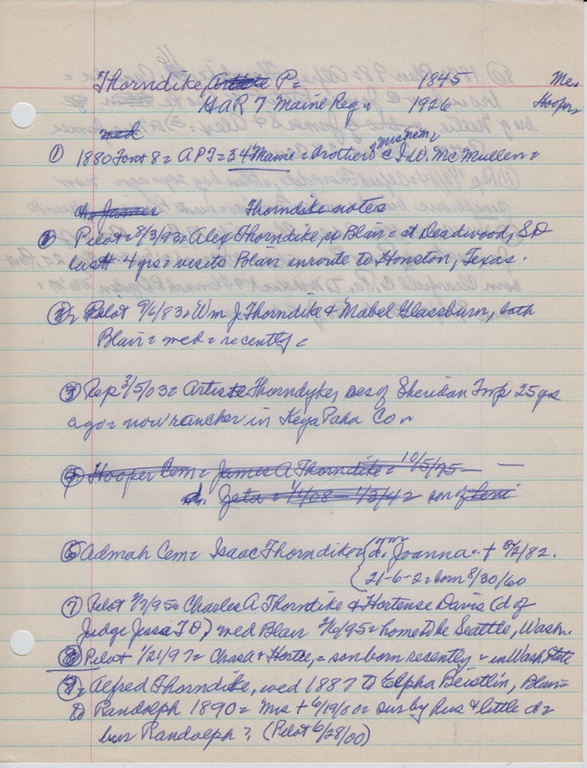 Thorndike, Artste P= 1845 Mem
GAR 7 Maine Reg= 1926 Hooper
med
① 1880 Font 8= AP7= 34 Maine= brother & mrs nem= I.D. McMullen=
Thorndike notes
② Pilot= 8/3/93= Alex Thorndike, ex Blair= at Deadwood, SD
last 4 yrs= visits Blair enroute to Houston, Texas.
③ Pilot 9/6/83= Wm J. Thorndike & Mabel Glassburn, both
Blair= wed= recently=
④ Rep 3/5/03= Artiste Thorndyke, res of Sheridan Twp 25 yrs
ago= now rancher in Keya Paha Co
⑤ Hooper Cem= James A Thorndike= 10/5/75 —
d. Zeta= 1/4/08 - 1/3/42 son of Levi
⑥ Admah Cem= Isaac Thorndike & Joanna= + 5/2/82.
21-6-2= born 8/30/60
⑦ Pilot 7/7/95= Charles A Thorndike & Hortense Davis (d of
Judge Jesse T D) wed Blair 7/6/95= home to be Seattle, Wash.
⑧ Pilot 1/21/97= Chas A & Horte,= son born recently = in Wash State
⑨ = Alfred Thorndike, wed 1887 to Elpha Beistlin, Blair=
to Randolph 1890= Mrs + 6/19/00= sur by hus & little d=
bur Randolph? (Pilot 6/28/00)